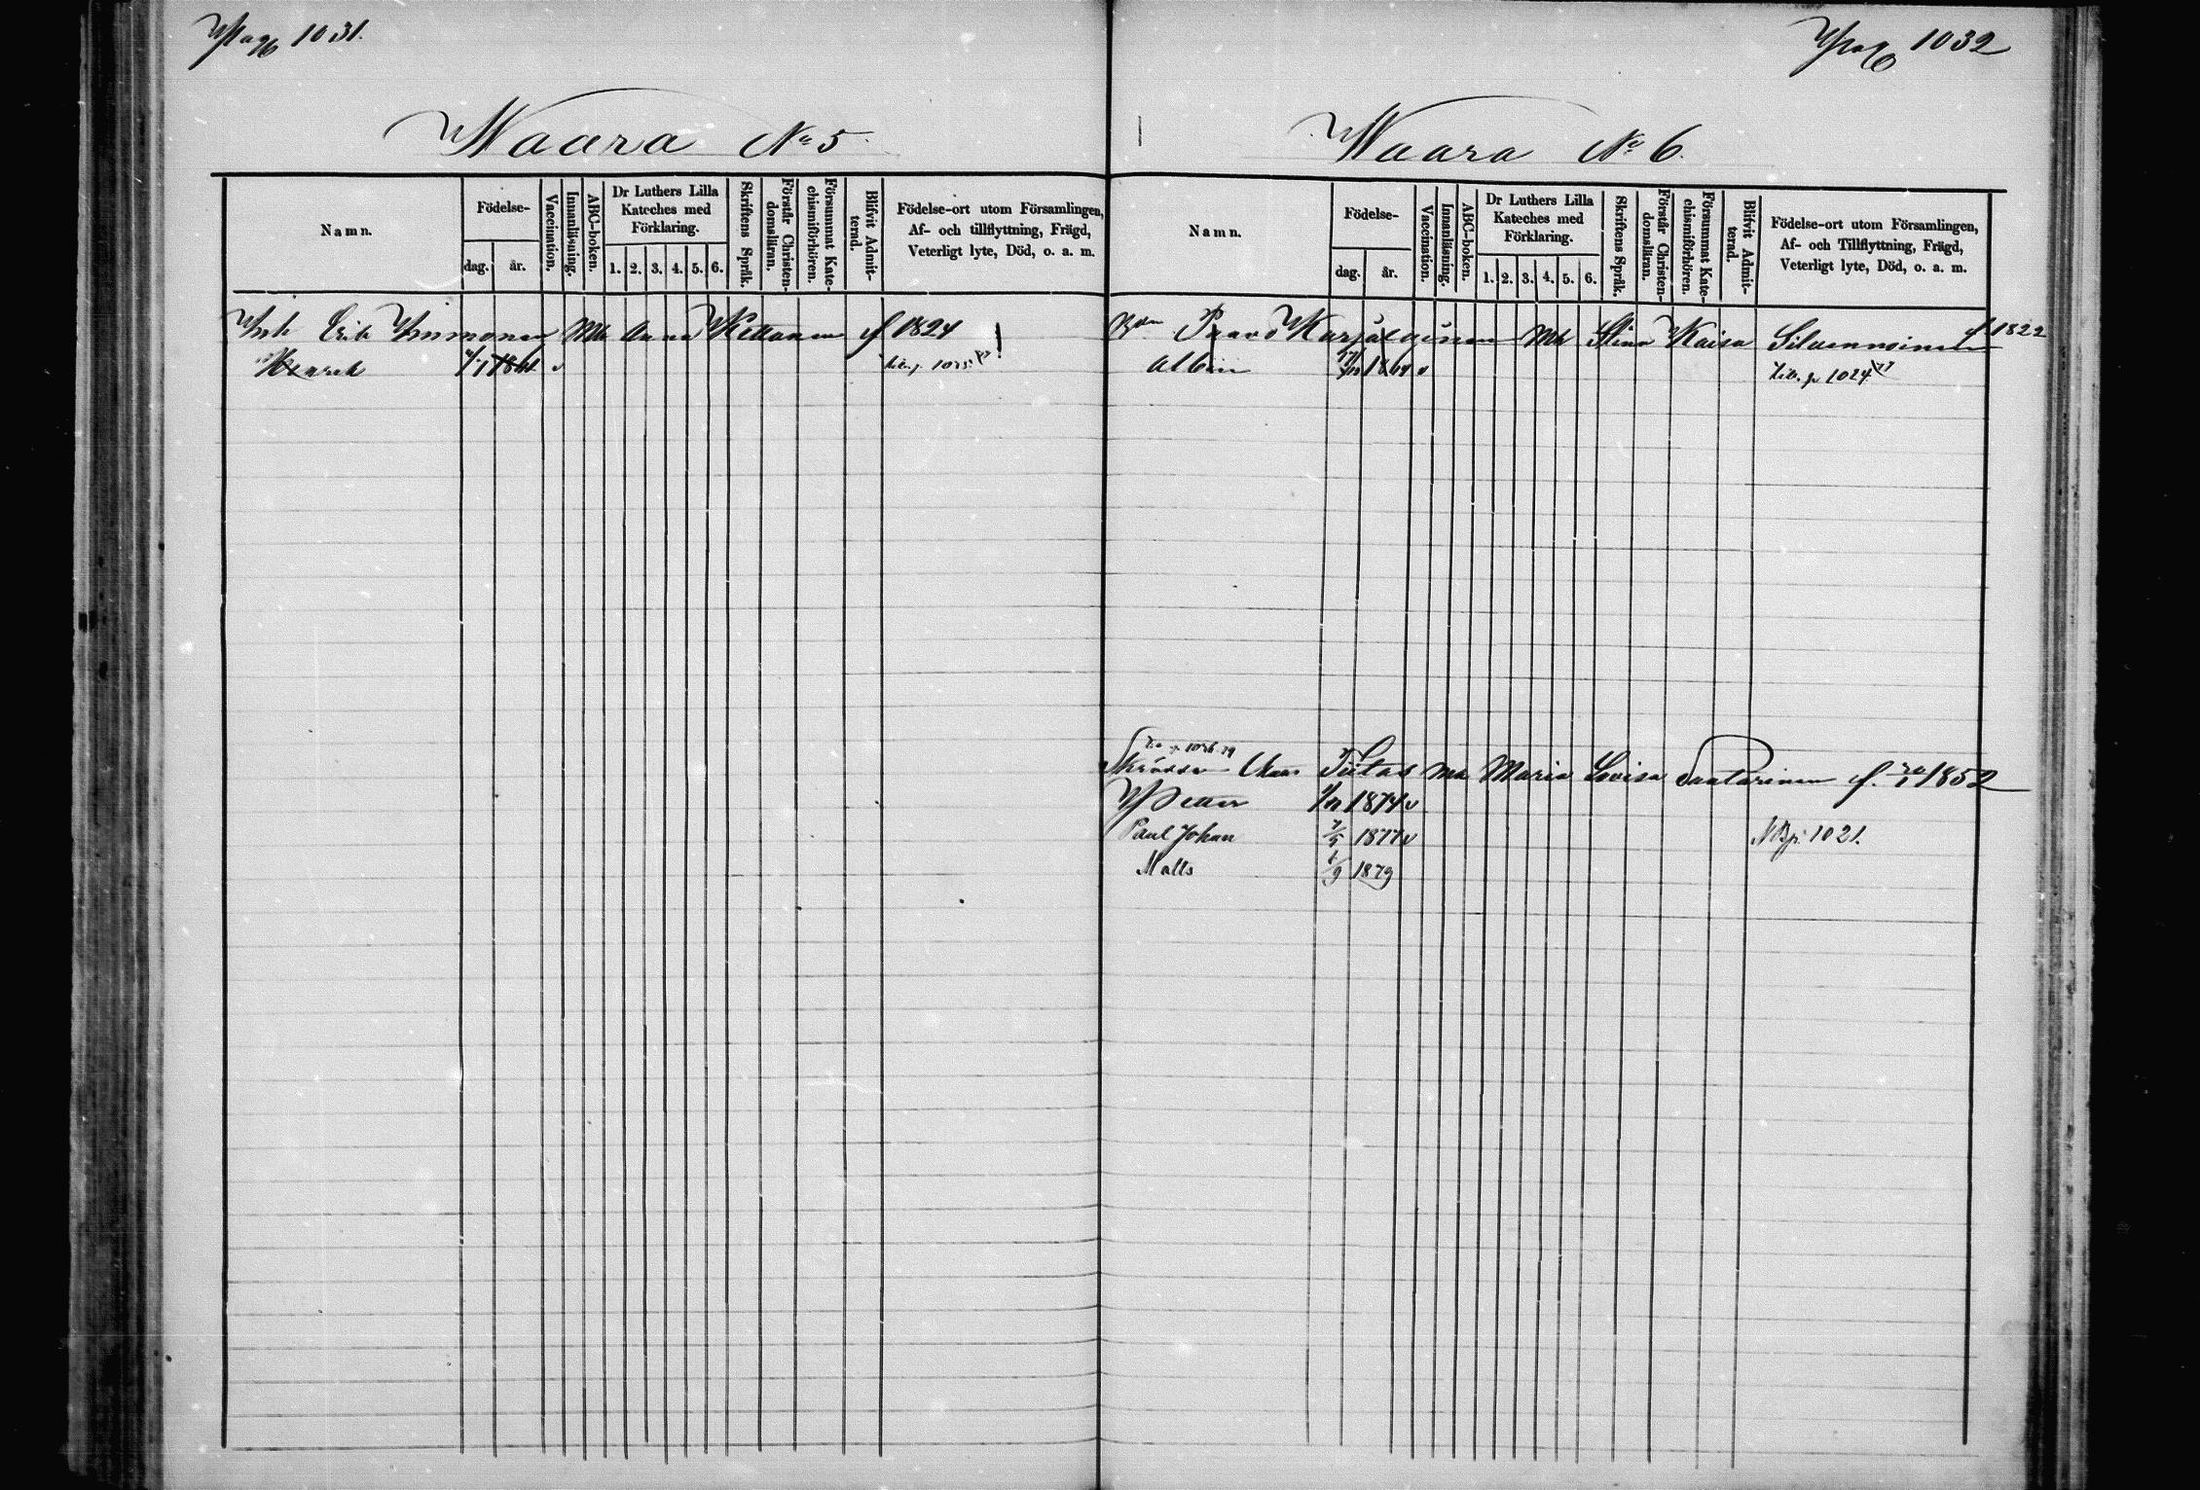 Pag 1031.
Waara No 5.
Namn.
Födelse-
dag.
år.
Vaccination.
Innanläsning.
ABC-boken.
Dr Luthers Lilla
Kateches med
Förklaring.
1. 2. 3. 4. 5. 6.
Skriftens Språk.
Förstår Christen-
domsläran.
Försummat Kate-
chismiförhören.
Blifvit Admit-
terad.
Födelse-ort utom Församlingen,
Af- och tillflyttning, Frägd,
Veterligt lyte, Död, o. a. m.
Inh Erik Immonen Mh Anna f 1824
Henrik v
Pag 1032
Waara No 6.
Namn.
Födelse-
dag.
år.
Vaccination.
Innanläsning.
ABC-boken.
Dr Luthers Lilla
Kateches med
Förklaring.
1. 2. 3. 4. 5. 6.
Skriftens Språk.
Förstår Christen-
domsläran.
Försummat Kate-
chismiförhören.
Blifvit Admit-
terad.
Födelse-ort utom Församlingen,
Af- och Tillflyttning, Frägd,
Veterligt lyte, Död, o. a. m.
Paavo Karjalainen Mh Stina Kaisa Silvennoinen f 1822
Albin v p 1024
Maria Lovisa Saatarinen f. 1852
Petter 1874 v
Paul Johan 7/5 1877 v p 1021.
Matts 1879